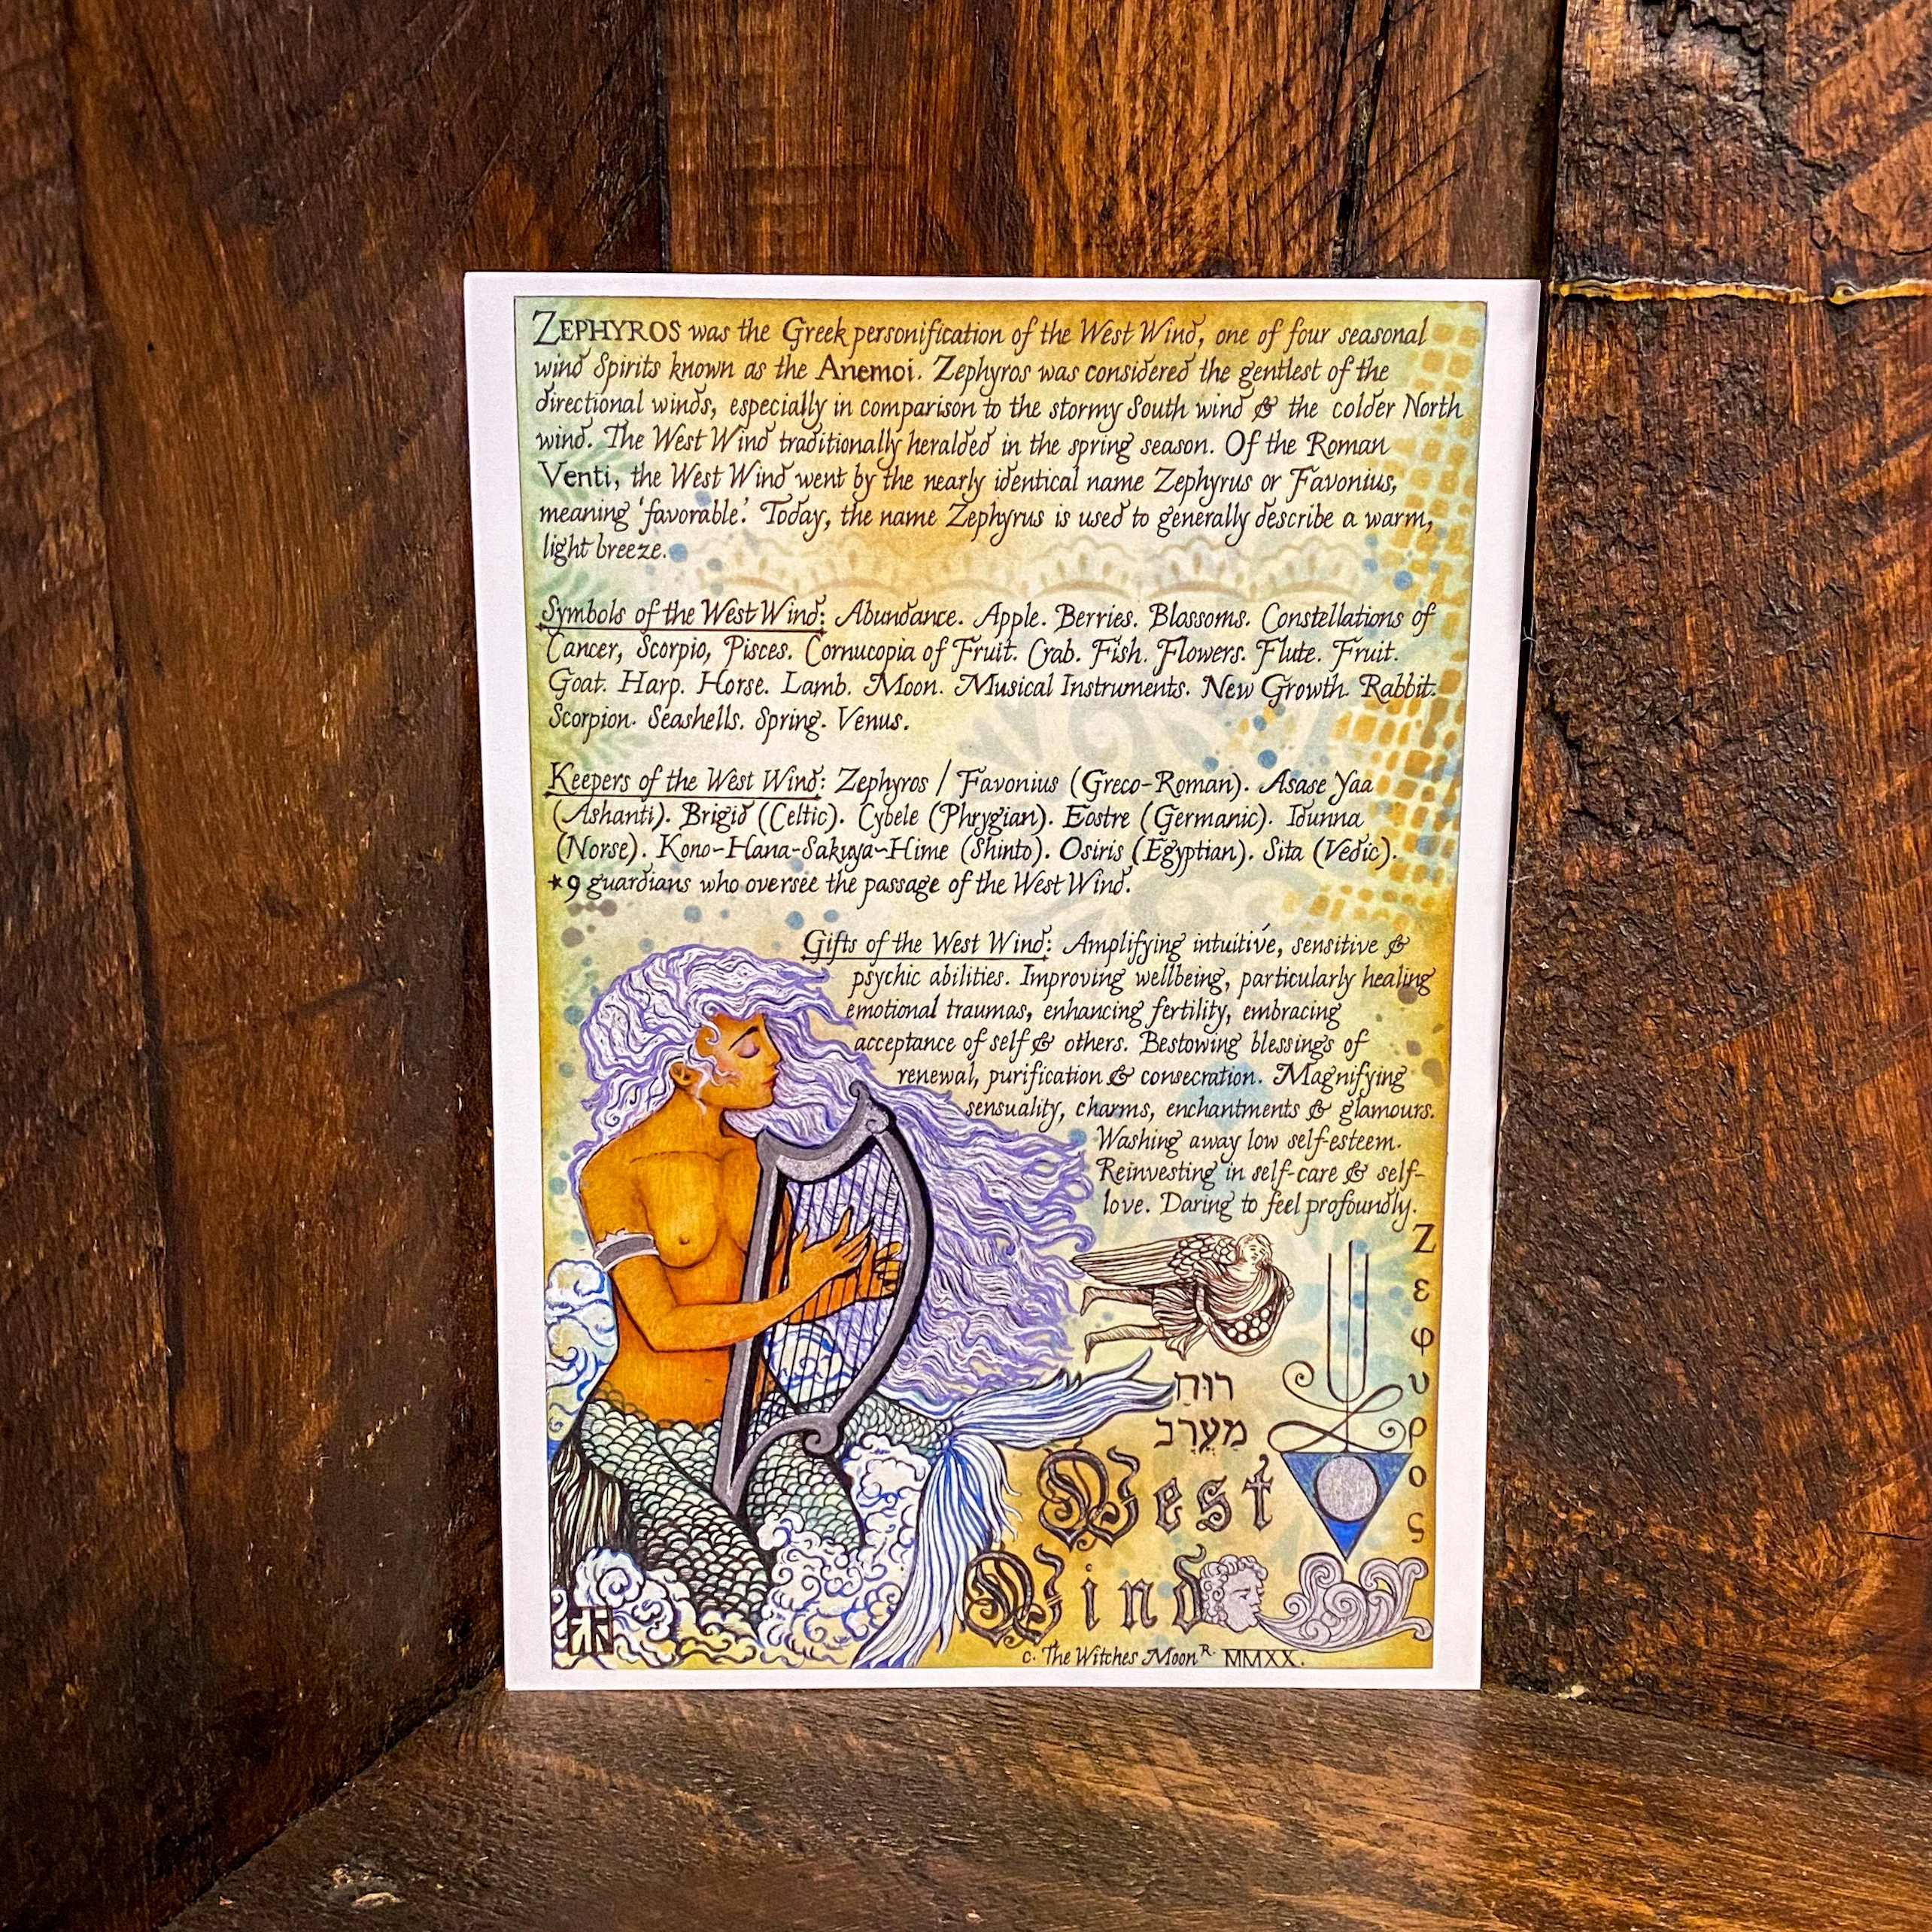 ZEPHYROS was the Greek personification of the West Wind, one of four seasonal
wind Spirits known as the Anemoi. Zephyros was considered the gentlest of the
directional winds, especially in comparison to the stormy South wind & the colder North
wind. The West Wind traditionally heralded in the spring season. Of the Roman
Venti, the West Wind went by the nearly identical name Zephyrus or Favonius,
meaning 'favorable.' Today, the name Zephyrus is used to generally describe a warm,
light breeze.
Symbols of the West Wind: Abundance. Apple. Berries. Blossoms. Constellations of
Cancer, Scorpio, Pisces. Cornucopia of Fruit. Crab. Fish. Flowers. Flute. Fruit.
Goat. Harp. Horse. Lamb. Moon. Musical Instruments. New Growth. Rabbit.
Scorpion. Seashells. Spring. Venus.
Keepers of the West Wind: Zephyros / Favonius (Greco-Roman). Asase Yaa
(Ashanti). Brigid (Celtic). Cybele (Phrygian). Eostre (Germanic). Idunna
(Norse). Kono-Hana-Sakuya-Hime (Shinto). Osiris (Egyptian). Sita (Vedic).
*9 guardians who oversee the passage of the West Wind.
Gifts of the West Wind: Amplifying intuitive, sensitive &
psychic abilities. Improving wellbeing, particularly healing
emotional traumas, enhancing fertility, embracing
acceptance of self & others. Bestowing blessings of
renewal, purification & consecration. Magnifying
sensuality, charms, enchantments & glamours.
Washing away low self-esteem.
Reinvesting in self-care & self-
love. Daring to feel profoundly.
Ζεφυρος
רוּחַ
מַעֲרָב
West
Wind
c. The Witches Moon R. MMXX.